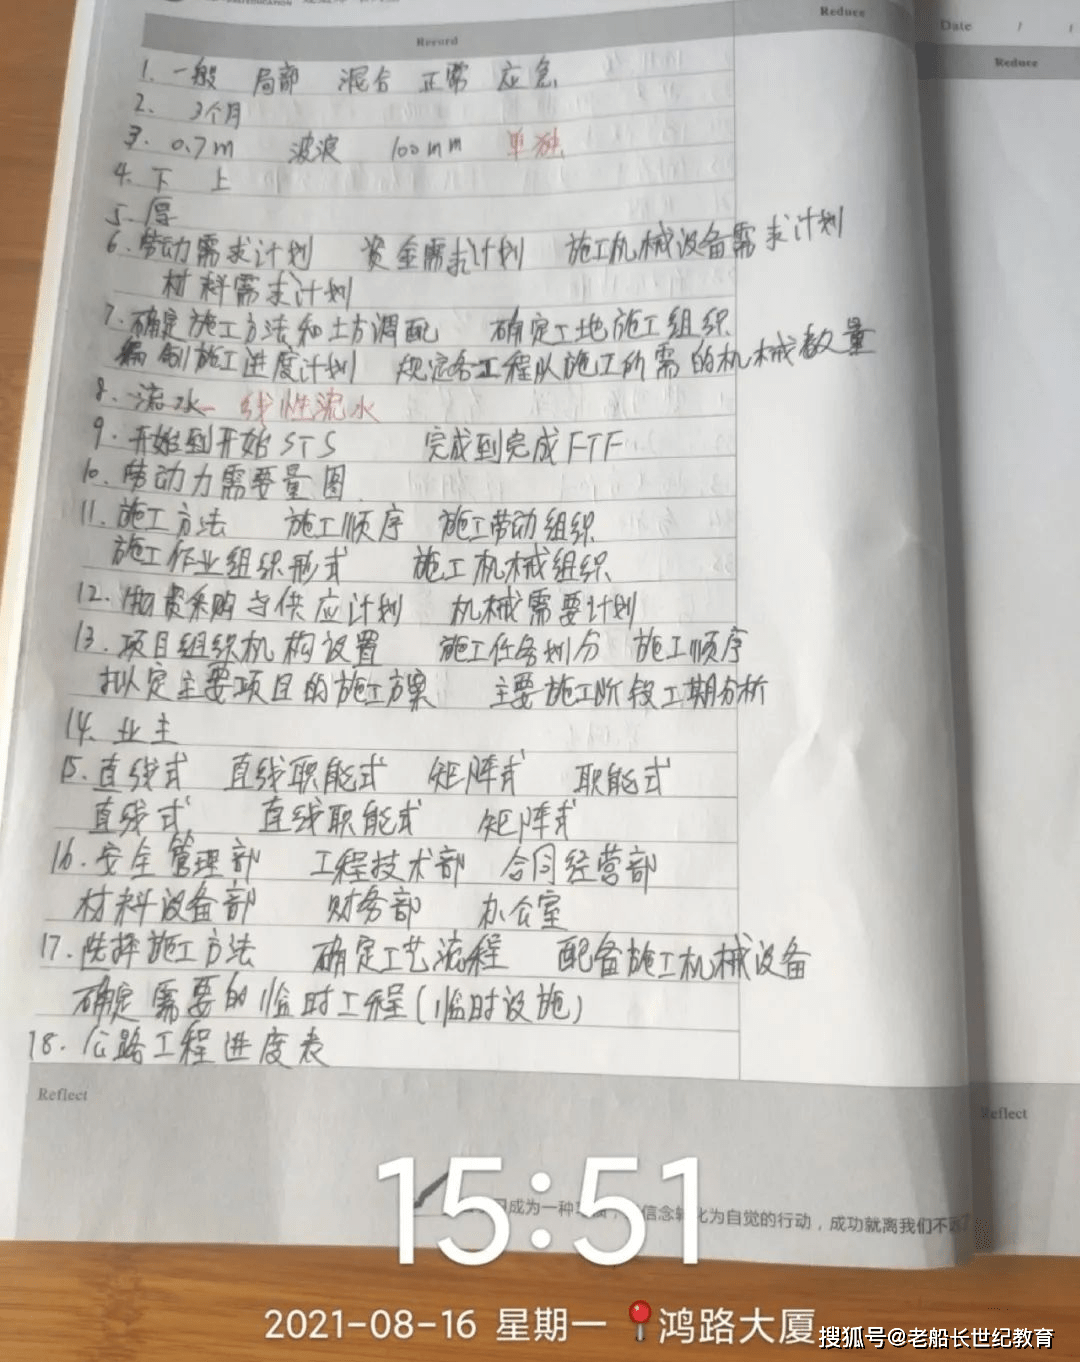 Reduce
Date / /
Record
Reduce
1. 一般 局部 混合 正常 应急
2. 3个月
3. 0.7m 波浪 100mm 单独
4. 下 上
5. 厚
6. 劳动需求计划 资金需求计划 施工机械设备需求计划
材料需求计划
7. 确定施工方法和土方调配 确定工地施工组织
编制施工进度计划 规定各工程队施工所需的机械数量
8. 流水 线性流水
9. 开始到开始STS 完成到完成FTF
10. 劳动力需要量图
11. 施工方法 施工顺序 施工劳动组织
施工作业组织形式 施工机械组织
12. 物资采购与供应计划 机械需要计划
13. 项目组织机构设置 施工任务划分 施工顺序
拟定主要项目的施工方案 主要施工阶段工期分析
14. 业主
15. 直线式 直线职能式 矩阵式 职能式
直线式 直线职能式 矩阵式
16. 安全管理部 工程技术部 合同经营部
材料设备部 财务部 办公室
17. 选择施工方法 确定工艺流程 配备施工机械设备
确定需要的临时工程(临时设施)
18. 公路工程进度表
Reflect
Reflect
成为一种 信念转化为自觉的行动，成功就离我们不远
15:51
2021-08-16 星期一 鸿路大厦
搜狐号@老船长世纪教育